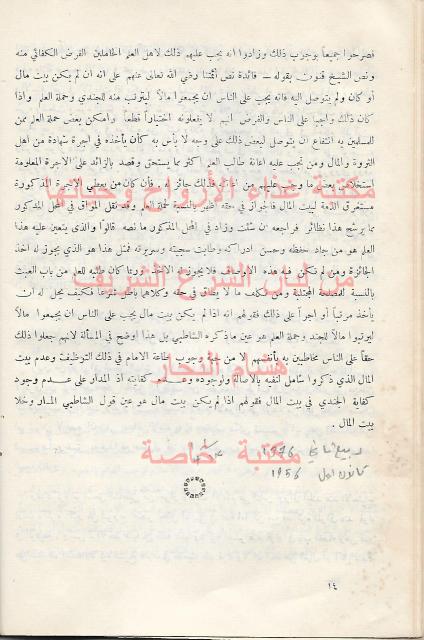 فصرحوا جميعاً بوجوب ذلك وزادوا انه يجب عليهم ذلك لاهل العلم الحاملين الفرض الكفائي منه
ونص الشيخ قنوت بقوله — فائدة نص أئمتنا رضي الله تعالى عنهم على انه ان لم يكن بيت مال
أو كان ولم يتوصل اليه فانه يجب على الناس ان يجمعوا مالاً ليرتب منه للجندي وحملة العلم واذا
كان ذلك واجباً على الناس والفرض انهم لا يفعلونه اختياراً قطعاً وأمكن بعض حملة العلم ممن
للمسلمين به انتفاع ان يتوصل لبعض ذلك على وجه لا بأس به كأن يأخذه في اجرة شهادة من اهل
الثروة والمال ومن تجب عليه اعانة طالب العلم اكثر مما يستحق وقصد بالزائد على الاجرة المعلومة
استخلاص بعض ما وجب عليهم من اعانته فذلك جائز له. فأن كان من يعطي الاجرة المذكورة
مستغرق الذمة لبيت المال فالجواز في حقه اظهر بالنسبة لحملة العلم وقد نقل المواق في المحل المذكور
مما يرشح هذا نظائر فراجعه ان شئت وزاد في المحل المذكور ما نصه قالوا والذي يتعين عليه هذا
العلم هو من جاد حفظه وحسن ادراكه وطابت سجيته وسريرته فمثل هذا هو الذي يجوز له أخذ
الجائزة ومن لم تكن فيه هذه الاوصاف فلا يجوز له الاخذ وربما كان طلبه للعلم من باب العبث
بالنسبة للمصلحة المجتلبة ومن تكلف ما لا يطاق في حقه وكلاهما باطل شرعاً فكيف يحل له ان
يأخذ مرتباً أو اجراً على ذلك فقولهم انه اذا لم يكن بيت مال يجب على الناس ان يجمعوا مالاً
ليرتبوا مالاً للجند وحملة العلم هو عين ما ذكره الشاطبي بل هذا اوضح في المسألة لانهم جعلوا ذلك
حقاً على الناس مخاطبين به بأنفسهم لا من جهة وجوب طاعة الامام في ذلك التوظيف وعدم بيت
المال الذي ذكروا شامل لنفيه بالاصالة ولوجوده وعدم كفايته اذ المدار على عدم وجود
كفاية الجندي في بيت المال فقولهم اذا لم يكن بيت مال هو عين قول الشاطبي المار وخلا
بيت المال .
مكتبة غذاء الأرواح وحياتها
من لباب الشرع الشريف
هشام النجار
مكتبة خاصة
ربيع ثاني ١٣٧٦
كانون اول 1956
١٤